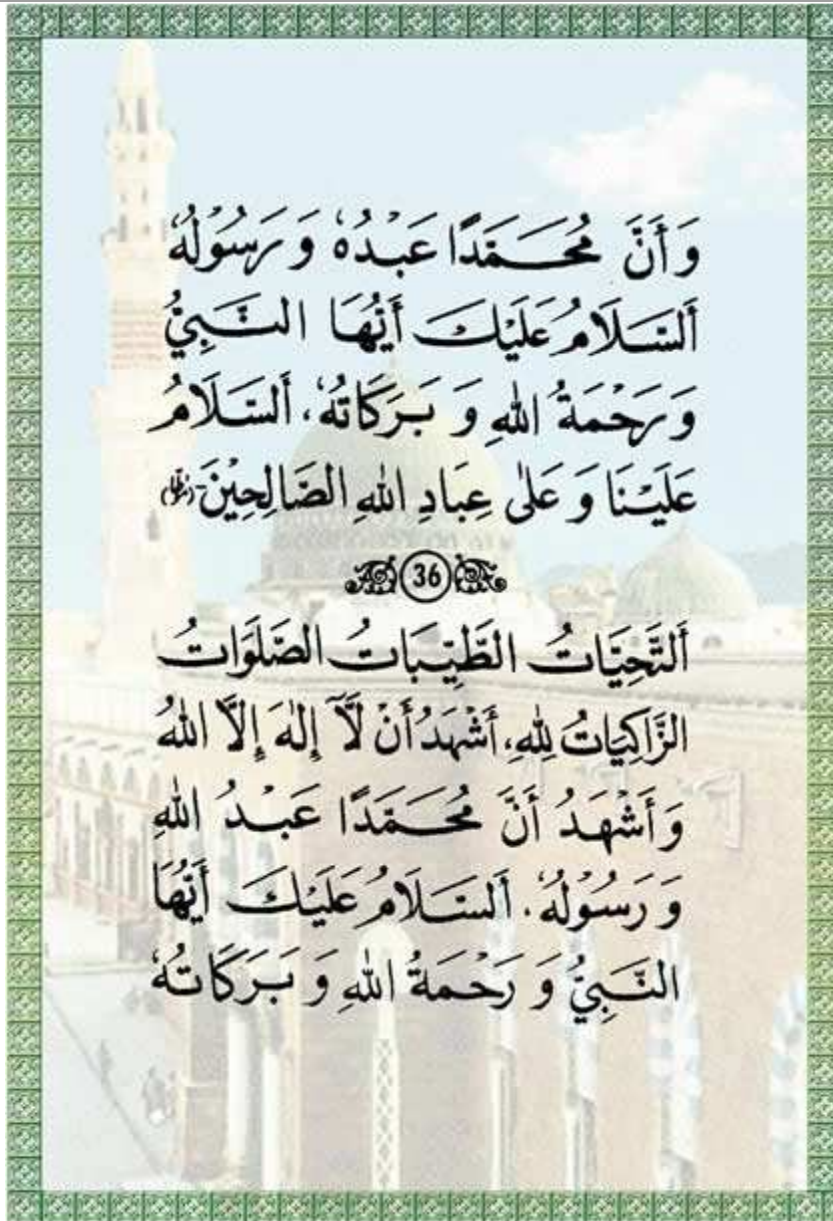 وَ أَنَّ مُحَمَّدًا عَبْدُهٗ وَ رَسُوْلُهٗ
اَلسَّلَامُ عَلَيْكَ أَيُّهَا النَّبِيُّ
وَ رَحْمَةُ اللهِ وَ بَرَكَاتُهٗ، اَلسَّلَامُ
عَلَيْنَا وَ عَلٰى عِبَادِ اللهِ الصَّالِحِيْنَ-
36
اَلتَّحِيَّاتُ الطَّيِّبَاتُ الصَّلَوَاتُ
الزَّاكِيَاتُ لِلهِ، أَشْهَدُ أَنْ لَّآ إِلٰهَ إِلَّا اللهُ
وَ أَشْهَدُ أَنَّ مُحَمَّدًا عَبْدُ اللهِ
وَ رَسُوْلُهٗ. اَلسَّلَامُ عَلَيْكَ أَيُّهَا
النَّبِيُّ وَ رَحْمَةُ اللهِ وَ بَرَكَاتُهٗ